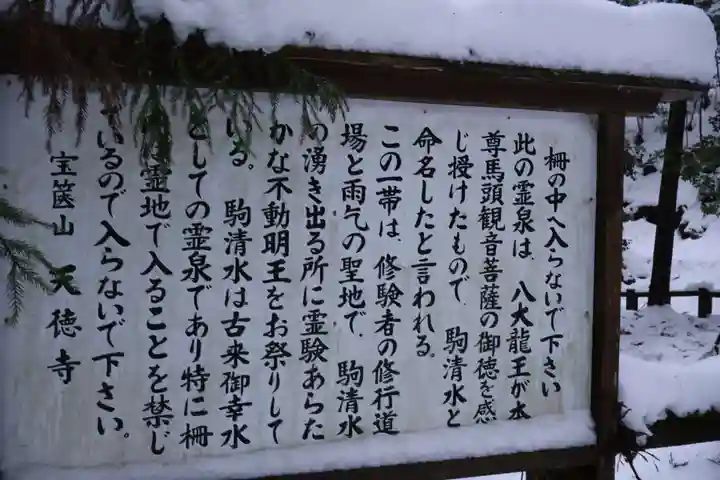 柵の中へ入らないで下さい
此の霊泉は、八大龍王が本
尊馬頭観音菩薩の御徳を感
じ授けたもので、駒清水と
命名したと言われる。
この一帯は、修験者の修行道
場と雨乞の聖地で、駒清水
の湧き出る所に霊験あらた
かな不動明王をお祭りして
いる。駒清水は古来御幸水
としての霊泉であり特に柵
霊地で入ることを禁じ
ているので入らないで下さい。
宝篋山 天徳寺